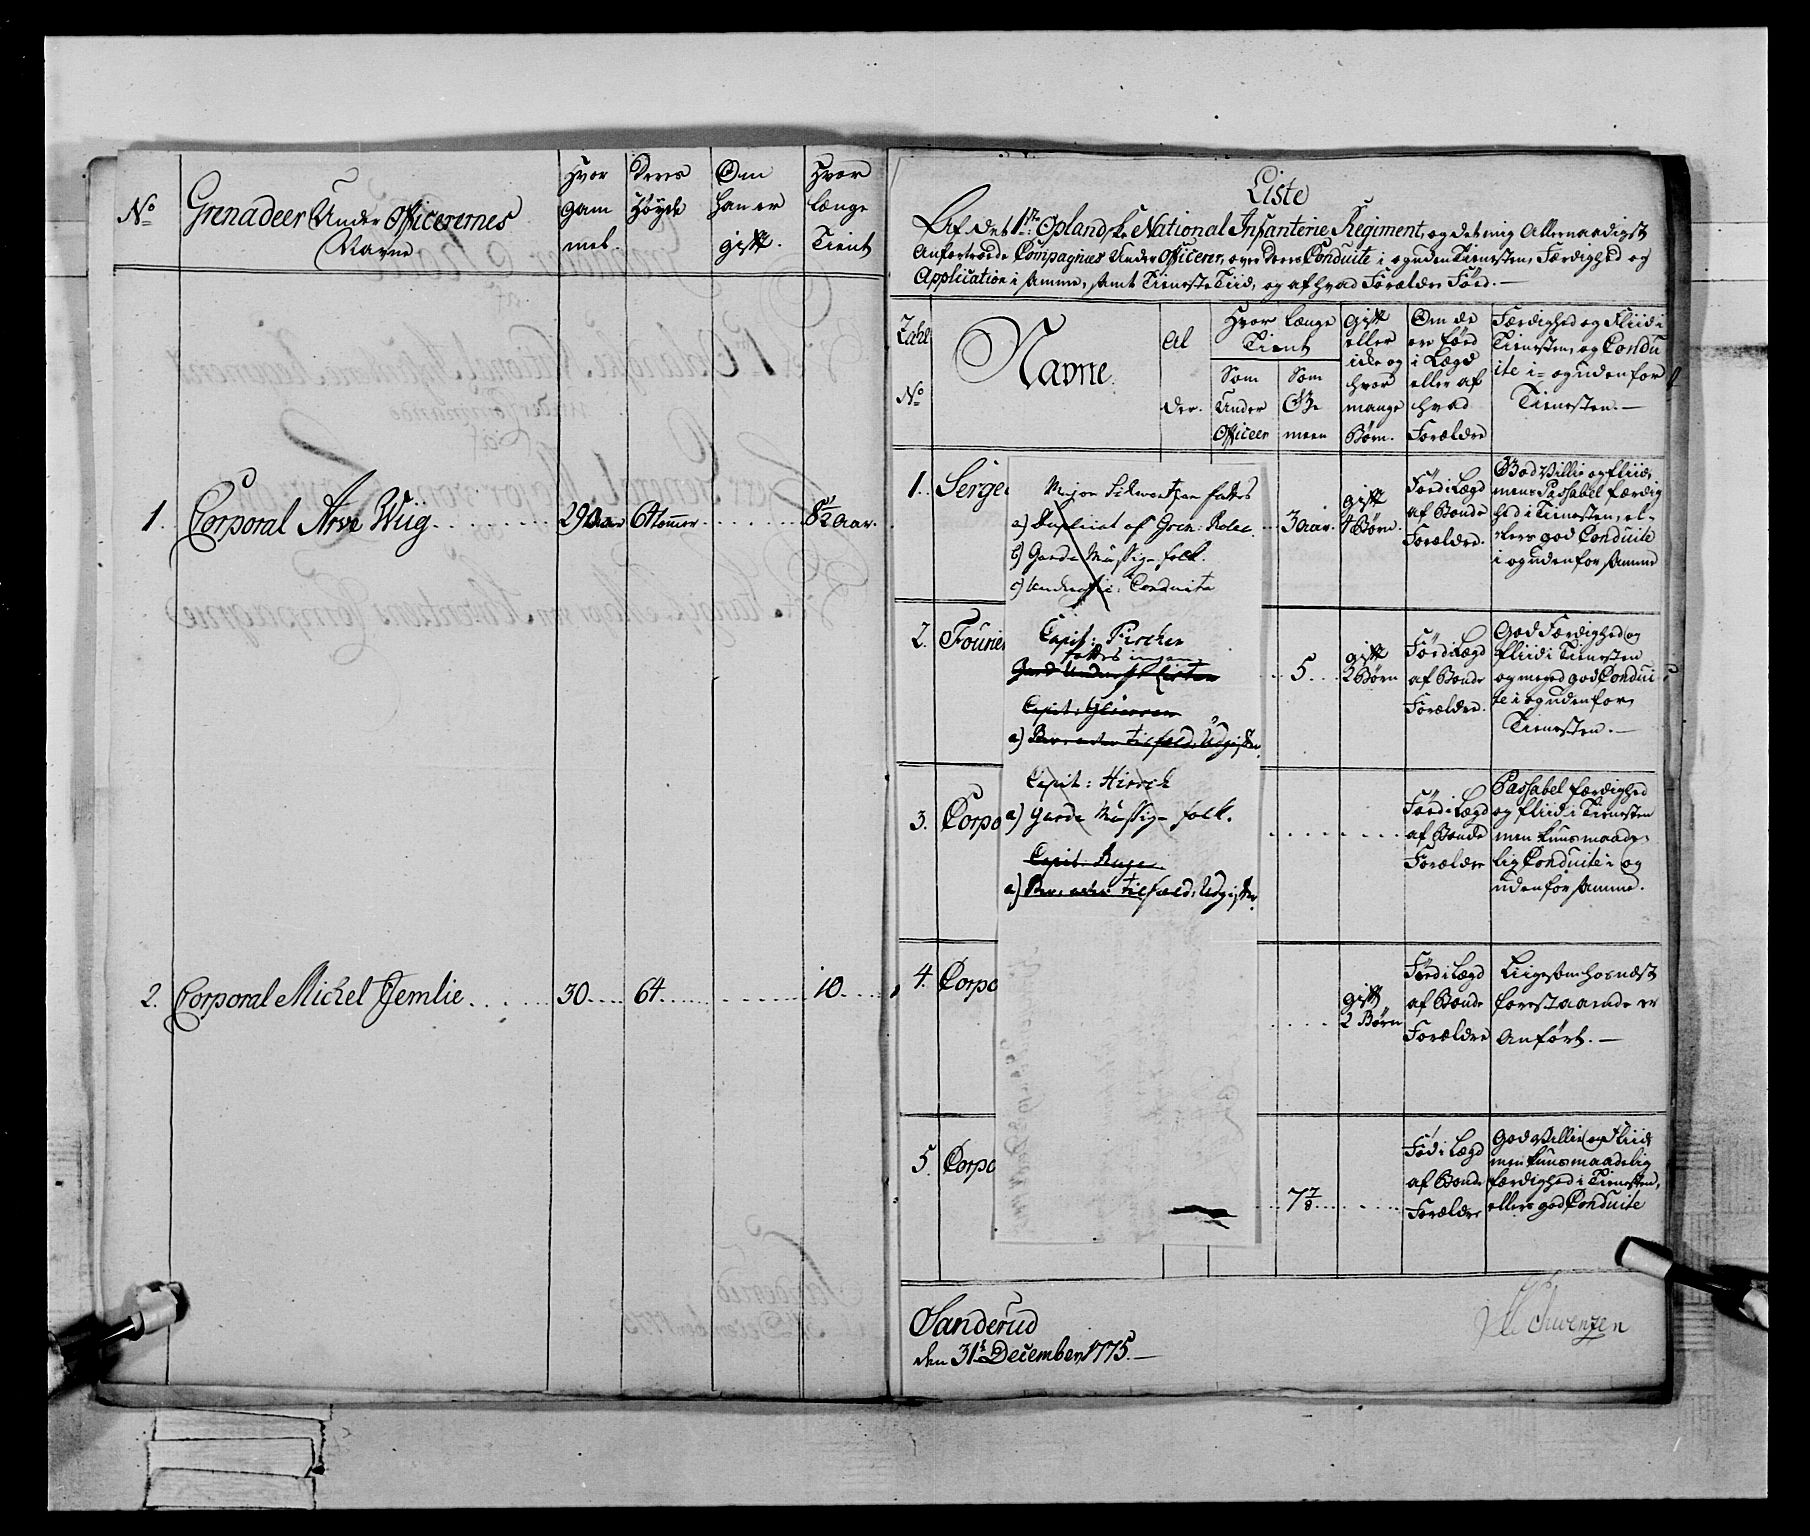 No
Grenadeer Under Officerernes
Navne
Hvor
gam
mel.
Deres
Høyde
Om
han er
gift.
Hvor
længe
Tient
1. Corporal Arve Wiig 29 Aar 64 tomer 8½ aar.
2. Corporal Michel Jemlie 30 64 10
Liste
Af det 1ste Oplandske National Infanterie Regiment, og det mig Allernaadigst
Anfortroede Compagnies Under Officerer, over deres Conduite i og uden Tienesten, Færdighed og
Application i samme, samt Tieneste Tiid, og af hvad Forældre Fød.
No
Navne.
Al
der.
Hvor længe
Tient
Som
Under
Officeer
Som
Ge
meen
Gift
eller
ide og
hvor
mange
Børn.
Om de
er fød
i Lægd
eller af
hvad
Forældre
Færdighed og Fliid i
Tienesten, og Condu
ite i- og uden for
Tienesten.
1. Serge
3 aar.
gift
4 Børn.
Fød i Lægd
af Bonde
Forældre.
God Villie og fliid,
men Passabel færdig
hed i Tienesten, el-
lers god Conduite
i og uden for samme
2. Fourie
5
gift
2 Børn
Fød i Lægd
af Bonde
Forældre.
God Færdighed og
fliid i Tienesten
og meged god Condui
te i og uden for
Tienesten.
3. Corpo
Fød i Lægd
af Bonde
Forældre
Passabel færdighed
og fliid i Tienesten
men kuns maade-
lig Conduite i og
uden for samme.
4. Corpo
gift
2 Børn
Fød i Lægd
af Bonde
Forældre
Liigesom hos næst
forestaaende er
Anført.
5. Corpo
7 7/8
Fød i Lægd
af Bonde
Forældre
God Villie og Fliid
men kuns maadelig
færdighed i Tienesten,
ellers god Conduite
Major Schwentzen fattes
a) Duplicat af Gren: Rolle.
b) Garde Mussig-folk.
c) Conduite
Capit: Fischer
fattes ingen
Capit:
a)
Capit: Hirsch
a) Garde Mussig-folk.
Capit: Ruge
a)
Sanderud
den 31te December 1775.